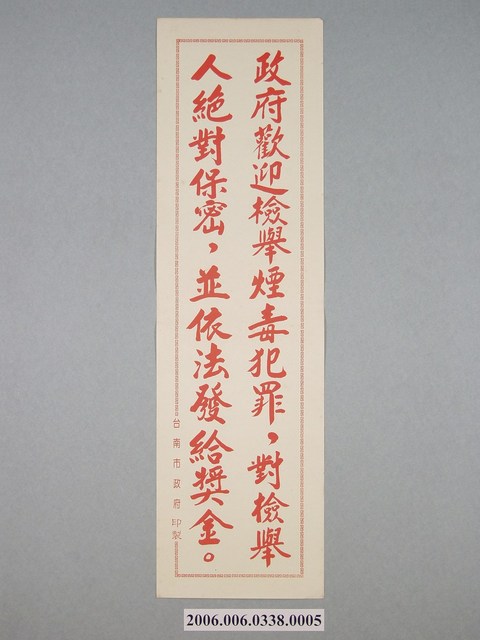 政府歡迎檢舉煙毒犯罪，對檢舉
人絕對保密，並依法發給獎金。
台南市政府印製
2006.006.0338.0005